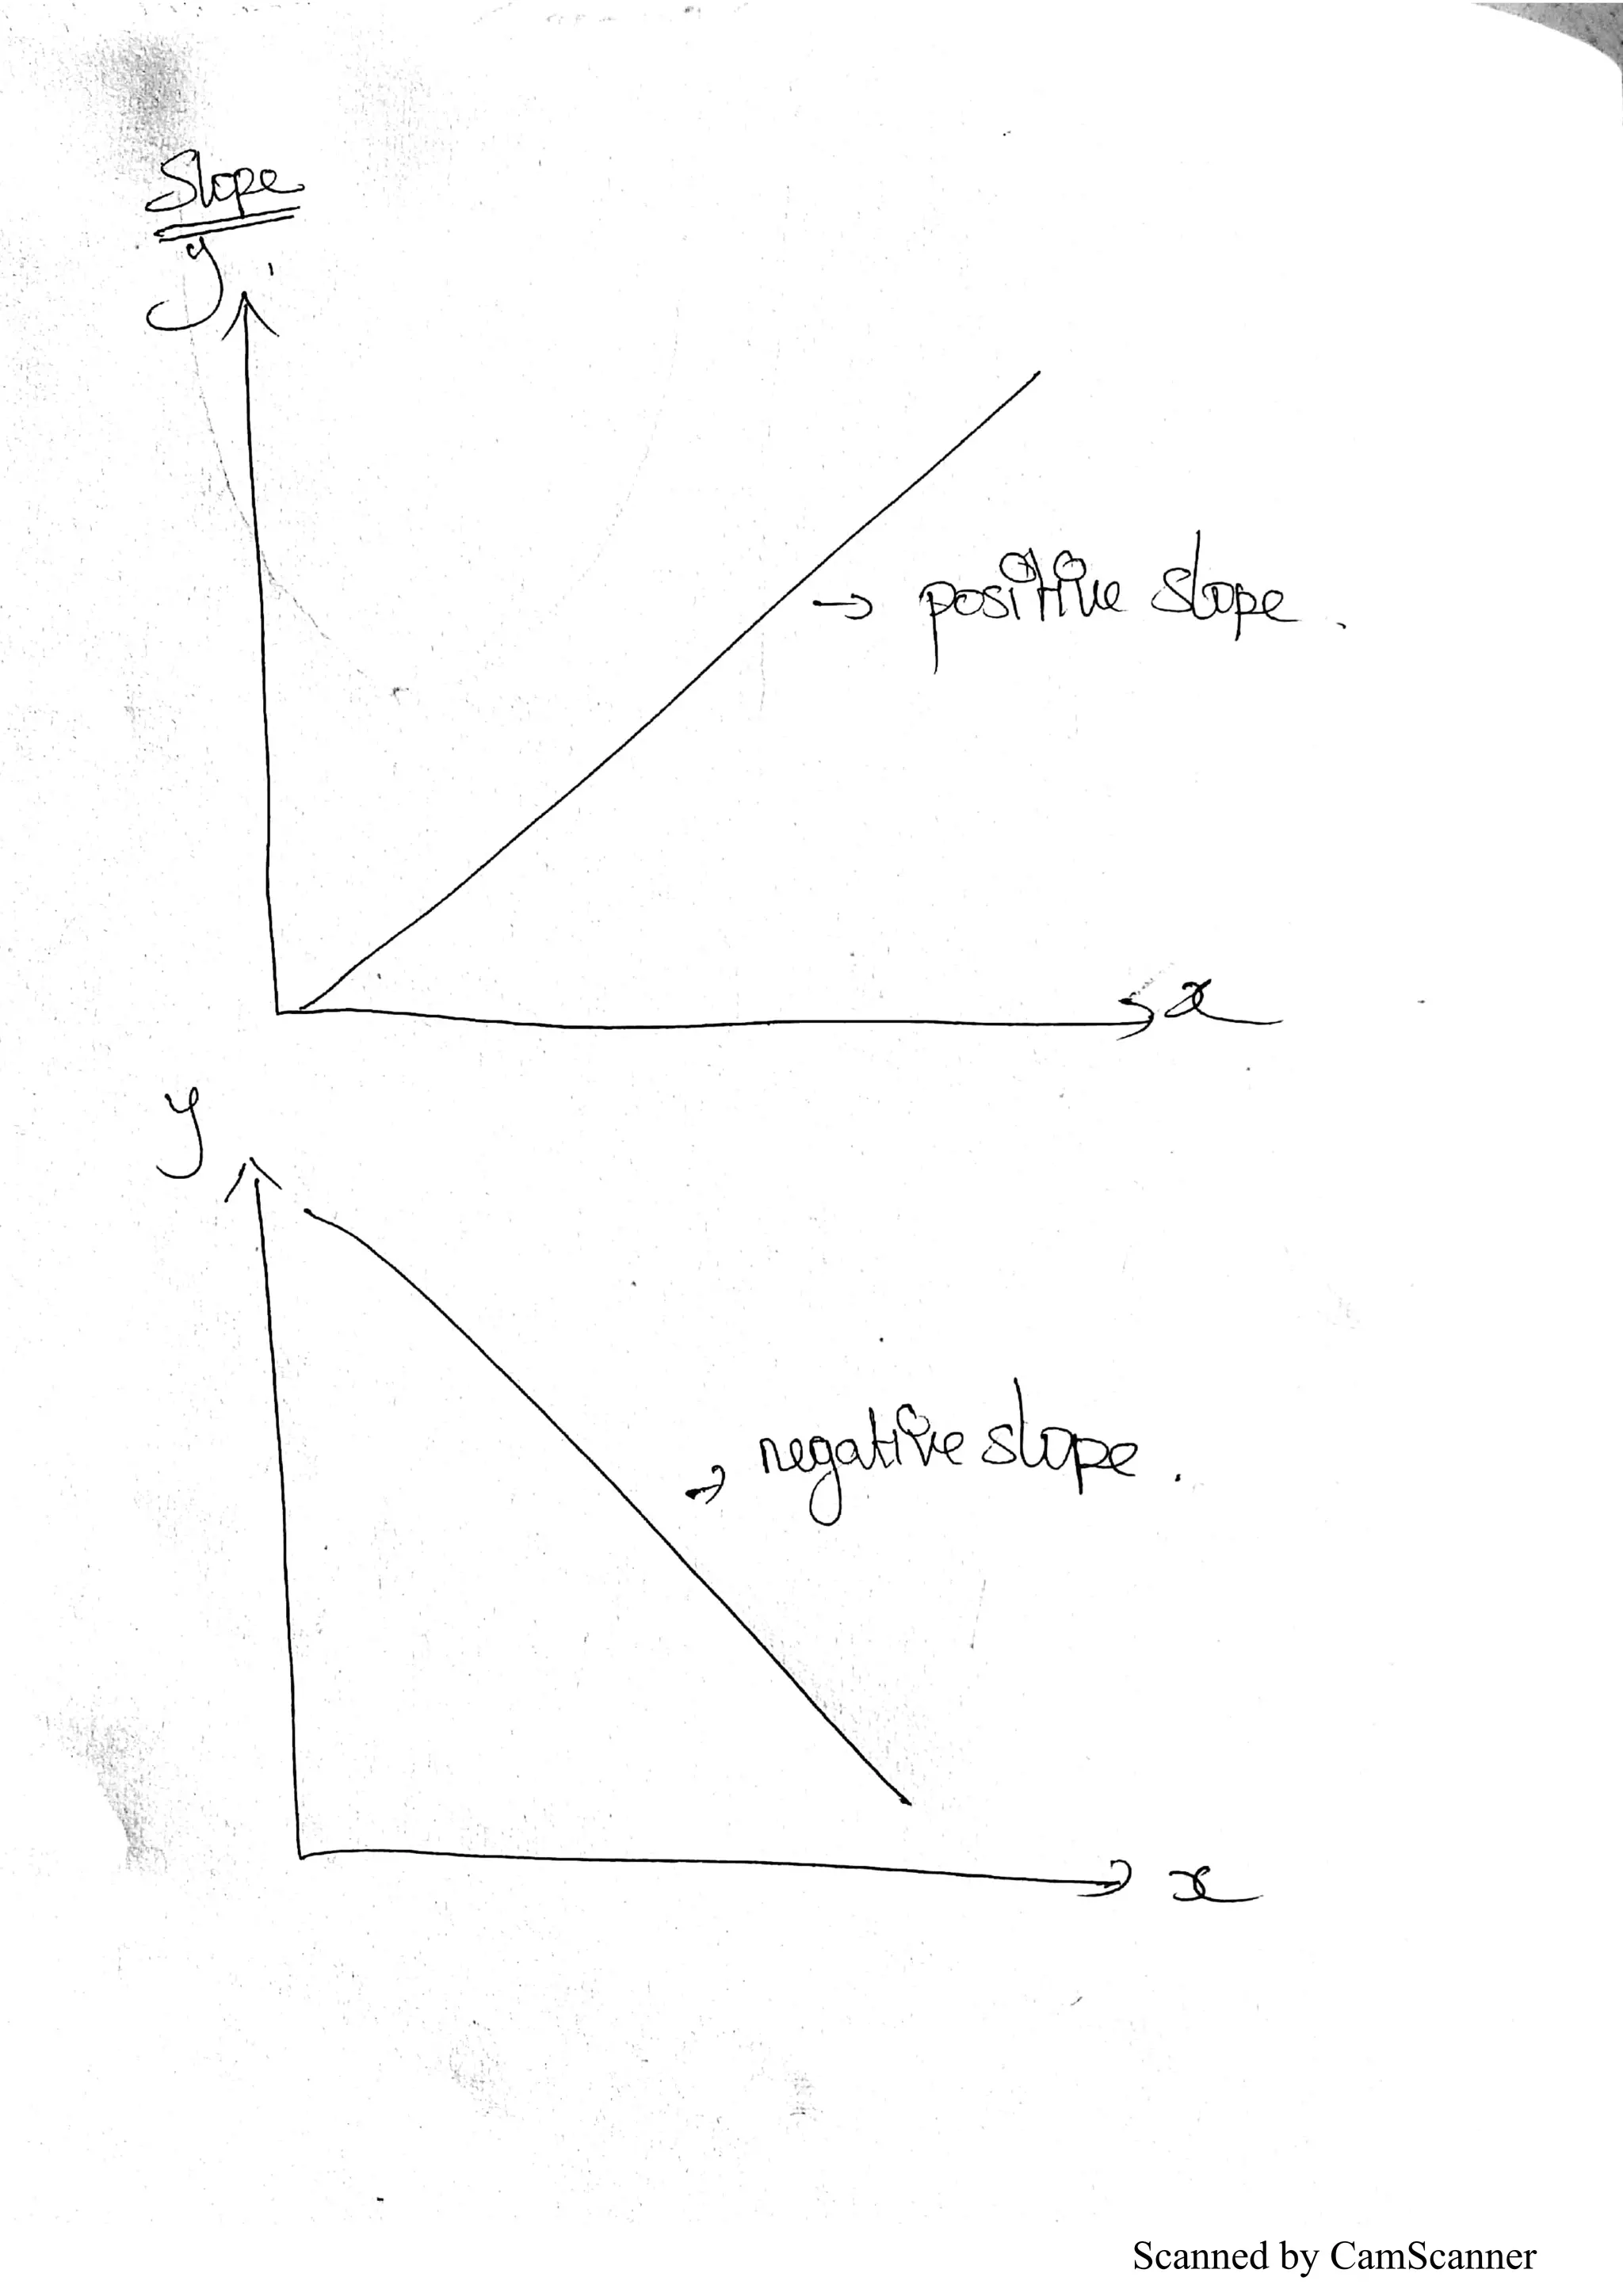 Slope
y
→ positive slope.
x
y
→ negative slope.
x
Scanned by CamScanner